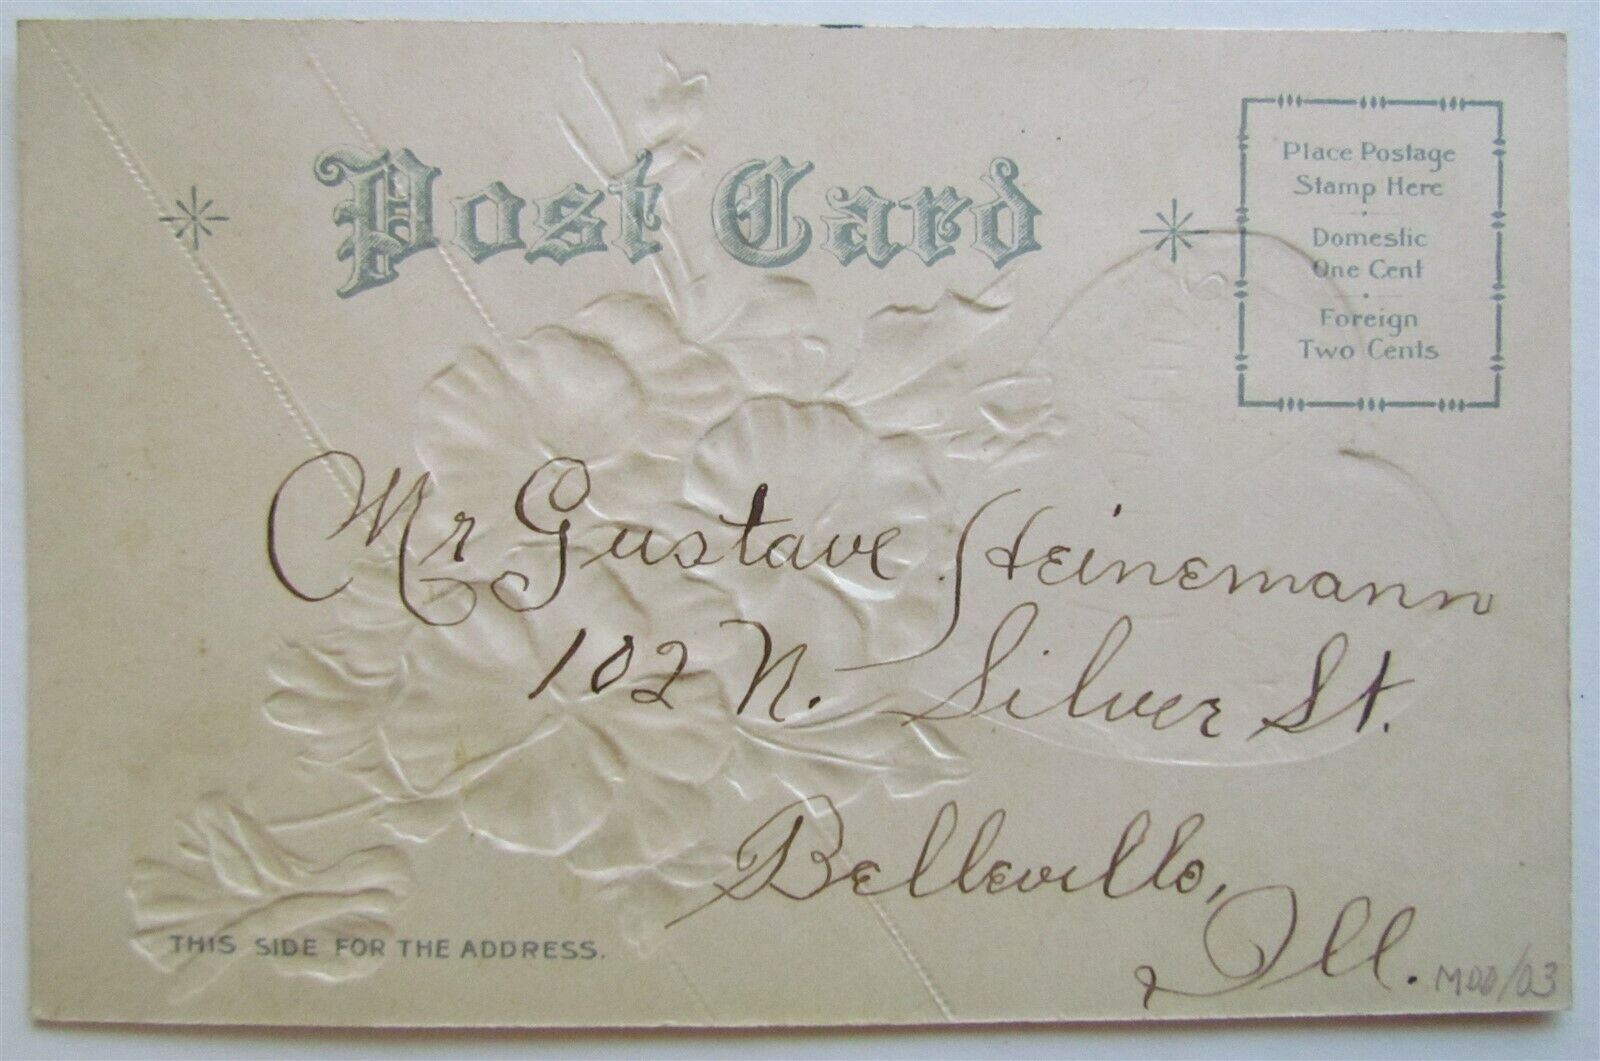 Post Card
Place Postage
Stamp Here
Domestic
One Cent
Foreign
Two Cents
Mr Gustave Heinemann
102 N. Silver St.
Belleville,
Ill.
THIS SIDE FOR THE ADDRESS.
M00/03